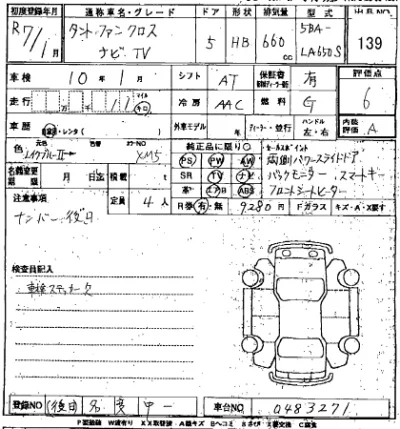 初度登録年月 通称車名・グレード ドア 形状 排気量 型式 出品NO
R7/1月 タント ファンクロス ナビ TV 5 HB 660cc 5BA-LA650S 139
車検 10年1月 シフト AT 保証書 有 評価点
走行 万 千 マイル キロ 冷房 AAC 燃料 G 6
車歴 ・レンタ( ) 外車モデル 年 ディーラー・並行 ハンドル 左・右 内装評価 A
色 元色 色替 カラーNO 純正品に限り○ セールスポイント
レイクブルーII XM5 PS PW AW 両側パワースライドドア
名義変更期限 月 日迄 積載 t SR TV ナビ バックモニター スマートキー
注意事項 定員 4人 革 エアB ABS フロントシートヒーター
ナンバー後日 R券 有・無 9280円 Fガラス キズ・A・X要す
検査員記入
車検ステッカー欠
登録NO (後日) 名変 車台NO 0483271